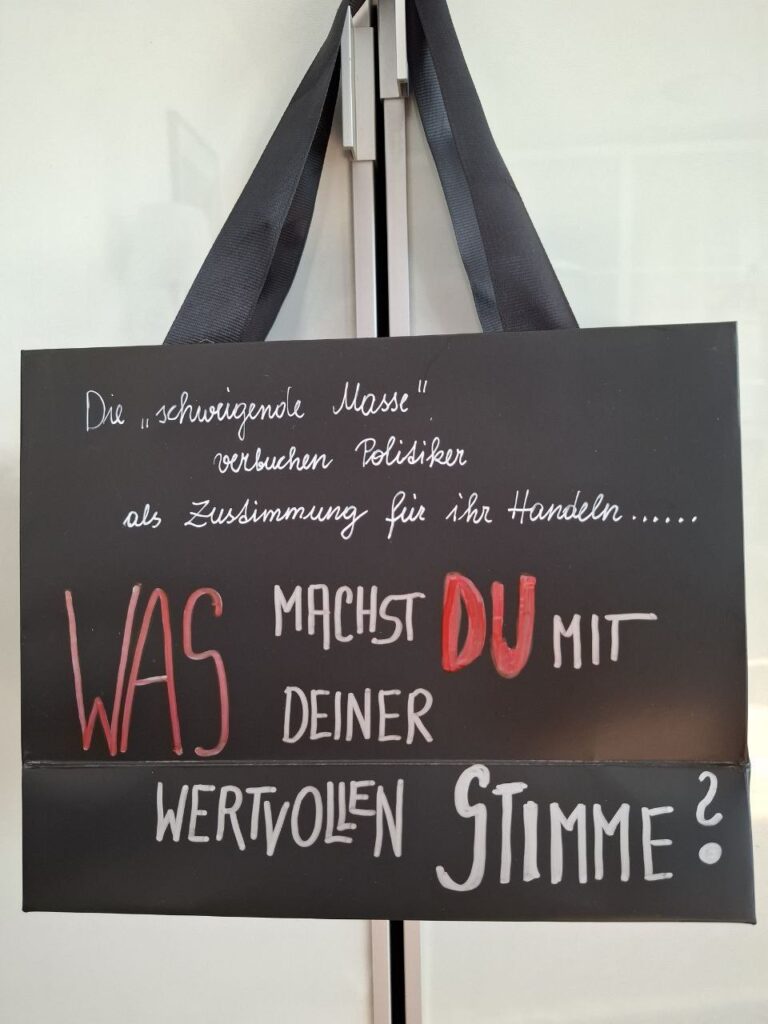 Die „schweigende Masse"
verbuchen Politiker
als Zustimmung für ihr Handeln......
WAS MACHST DU MIT
DEINER
WERTVOLLEN STIMME?